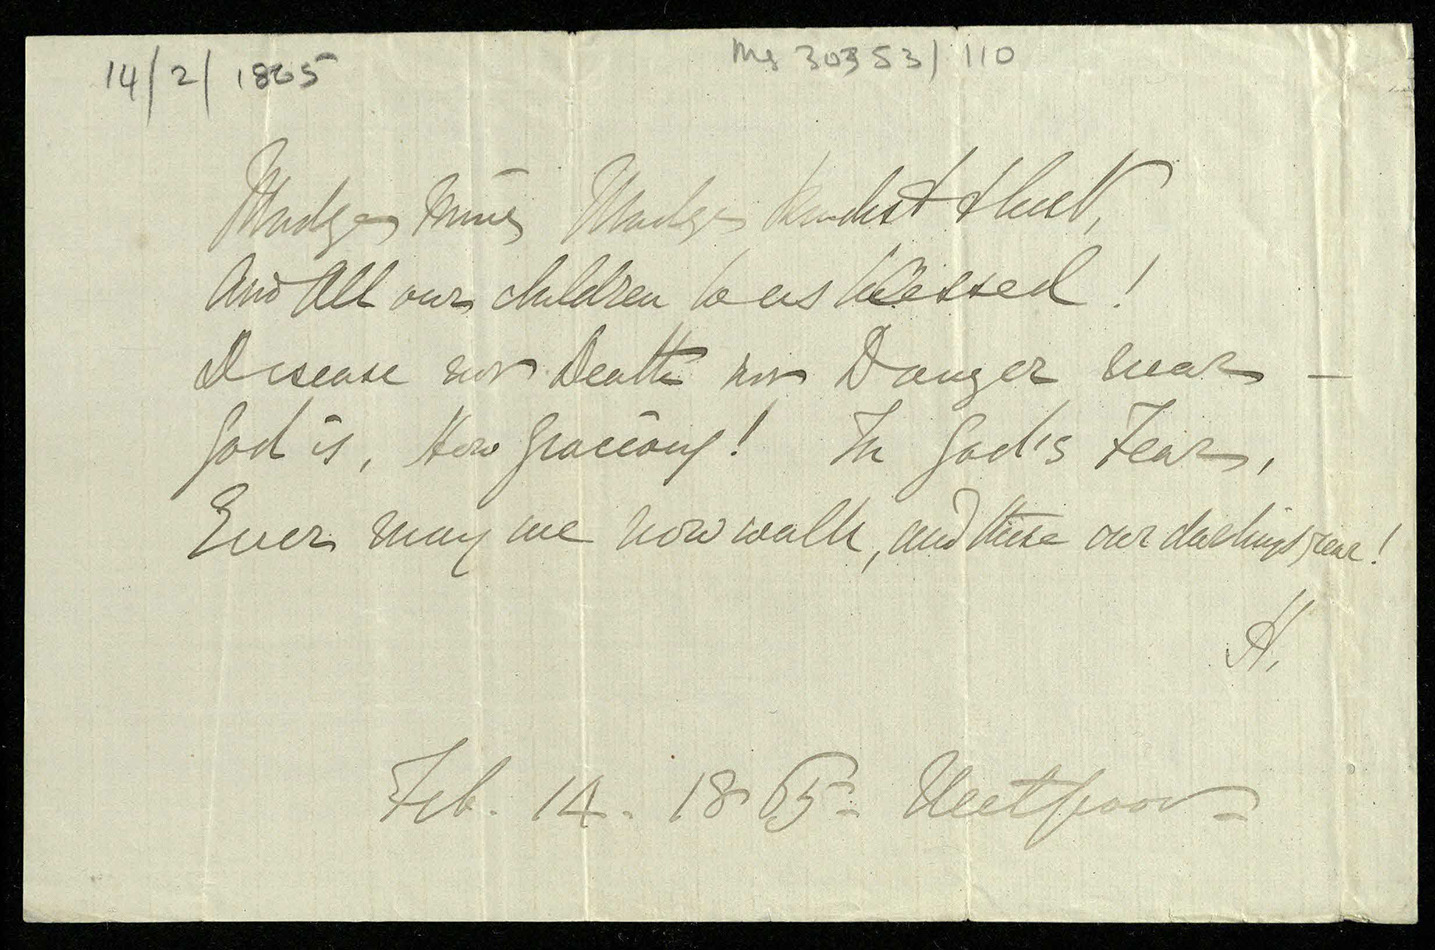 14/2/1865
Ms 30353/110
Madge mine, Madge kindest & best,
And All our children to us blessed!
Disease nor Death nor Danger near –
God is, How gracious! In God's Fear,
Ever may we now walk, and these our darlings rear!
H.
Feb. 14. 1865